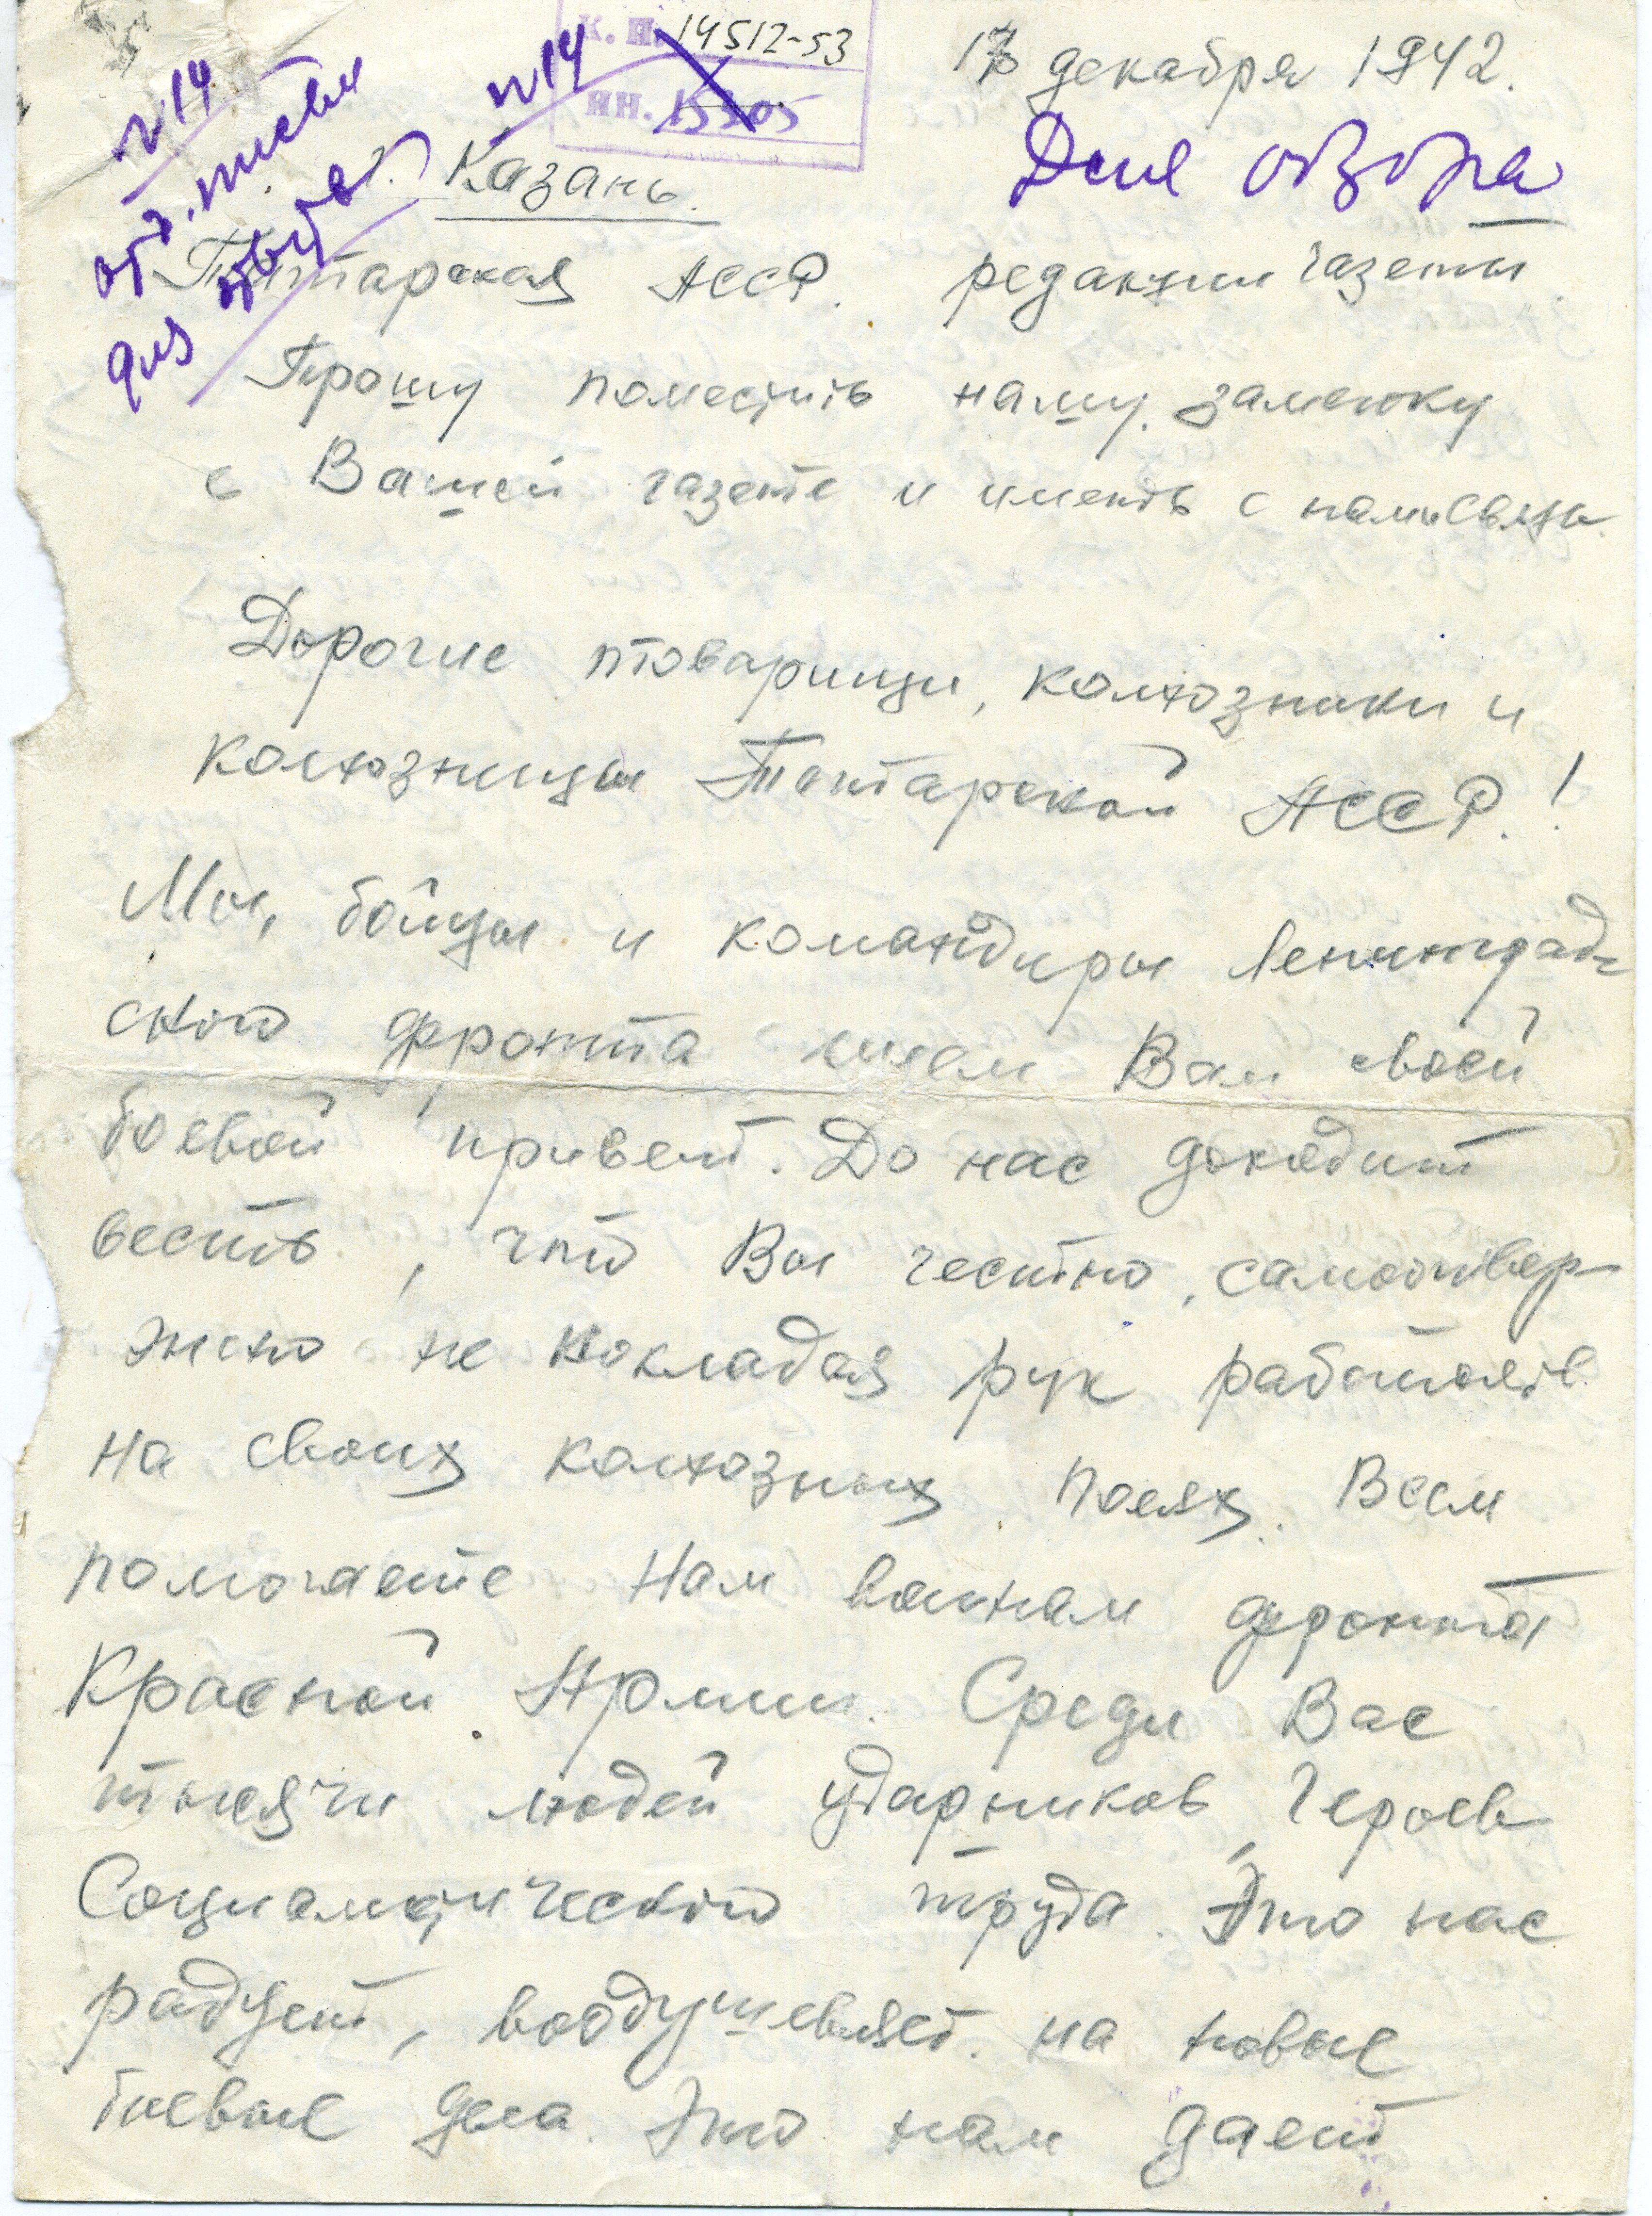 К. П. 14512-53
ИН. 15505
17 декабря 1942.
№14
№14
отд. писем
для обзора
Для обзора
г. Казань.
Татарская АССР. редакции газеты.
Прошу поместить нашу заметку
в Вашей газете и иметь с нами связь.
Дорогие товарищи, колхозники и
колхозницы Татарской АССР.!
Мы, бойцы и командиры Ленинград-
ского фронта шлем Вам свой
боевой привет. До нас доходит
весть, что Вы честно, самоотвер-
жено не покладая рук работаете
на своих колхозных полях. Всем
помогаете нам воинам фронта
Красной Армии. Среди Вас
тысячи людей ударников, Героев
Социалистического труда. Это нас
радует, воодушевляет на новые
боевые дела. Это нам дает